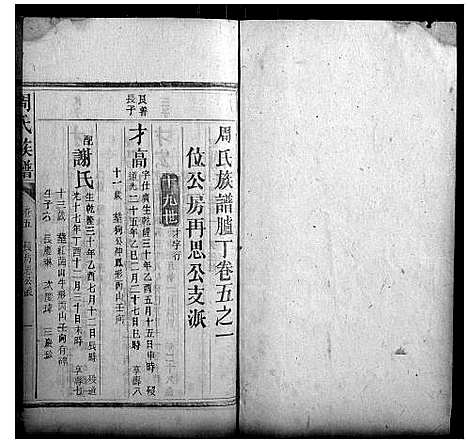 周氏族譜臚丁卷五之一
位公房再思公支派
十九世
才字行
良善
長子
才高
字仕廣生乾隆三十年乙酉五月十五日申時 歿
道光二十五年乙巳二月二十七日巳時 享壽八
十一歲 墓狗公沖鳳形丙山壬向
配
謝氏
生乾隆三十年乙酉七月十二日辰時 歿道
光十七年丁酉十二月三十日未時 享壽七
十三歲 墓紅菌山牛形丙山壬向有碑
周氏族譜
卷五